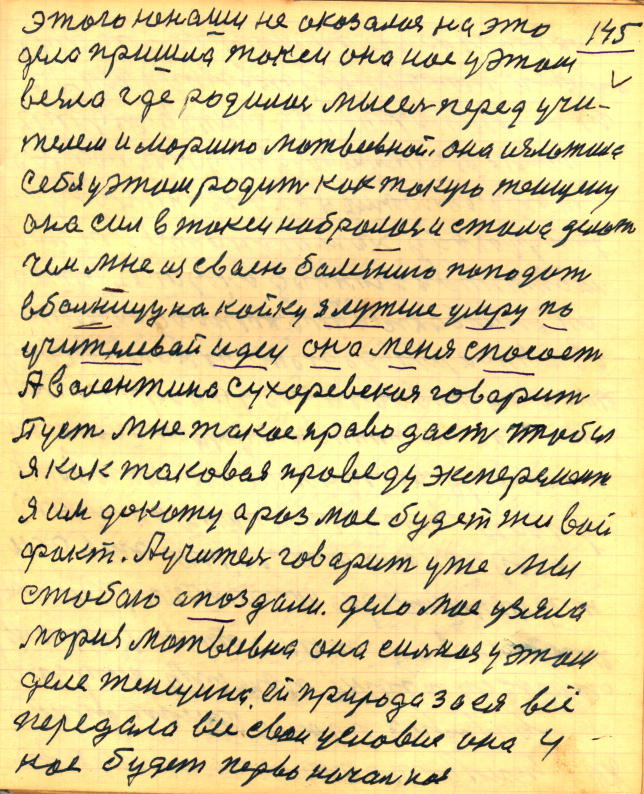 этого юнаши не оказалоя на это 145
дело пришла такеи она ное уэтом
веяла где родилоя мысея перед учи-
телем и моршю мотвеевной. она изложила
себя уэтом родит как токую женщену
она сил в такеи набролоя и стала делот
чем мне из своею болезнию попадат
вболницу на койку я лутше умру по
учителевай идеи она меня спосает
А валентина Сухаревская говарит
Пуст мне такое право даст чтобы
я как таковая проведу эксперемент
я им докожу а роз мое будет живой
факт. Аучител говарит уже мы
стобаю апоздали. дело мое узяла
мория мотвеевна она силная у этом
деле женщина. ей природа зоея всё
передала все свои условие она у
нос будет перво ночалноя